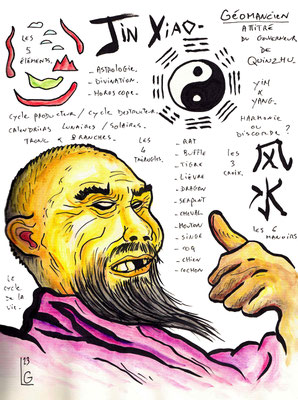 JIN XIAO-
GÉOMANCIEN
ATTITRÉ
DU GOUVERNEUR
DE
QUINZHU.
LES
5
ÉLÉMENTS.
_ ASTROLOGIE.
_ DIVINATION.
_ HOROSCOPE.
YIN
&
YANG.
HARMONIE
OU
DISCORDE ?
CYCLE PRODUCTEUR / CYCLE DESTRUCTEUR
CALENDRIERS LUNAIRES / SOLAIRES.
TRONCS & BRANCHES.
LES
4
TRIANGLES.
_ RAT
_ BUFFLE
_ TIGRE
_ LIÈVRE
_ DRAGON
_ SERPENT
_ CHEVAL
_ MOUTON
_ SINGE
_ COQ
_ CHIEN
_ COCHON
LES
3
CROIX.
风
水
LES 6
MAISONS
LE
CYCLE
DE LA
VIE.
23
LG